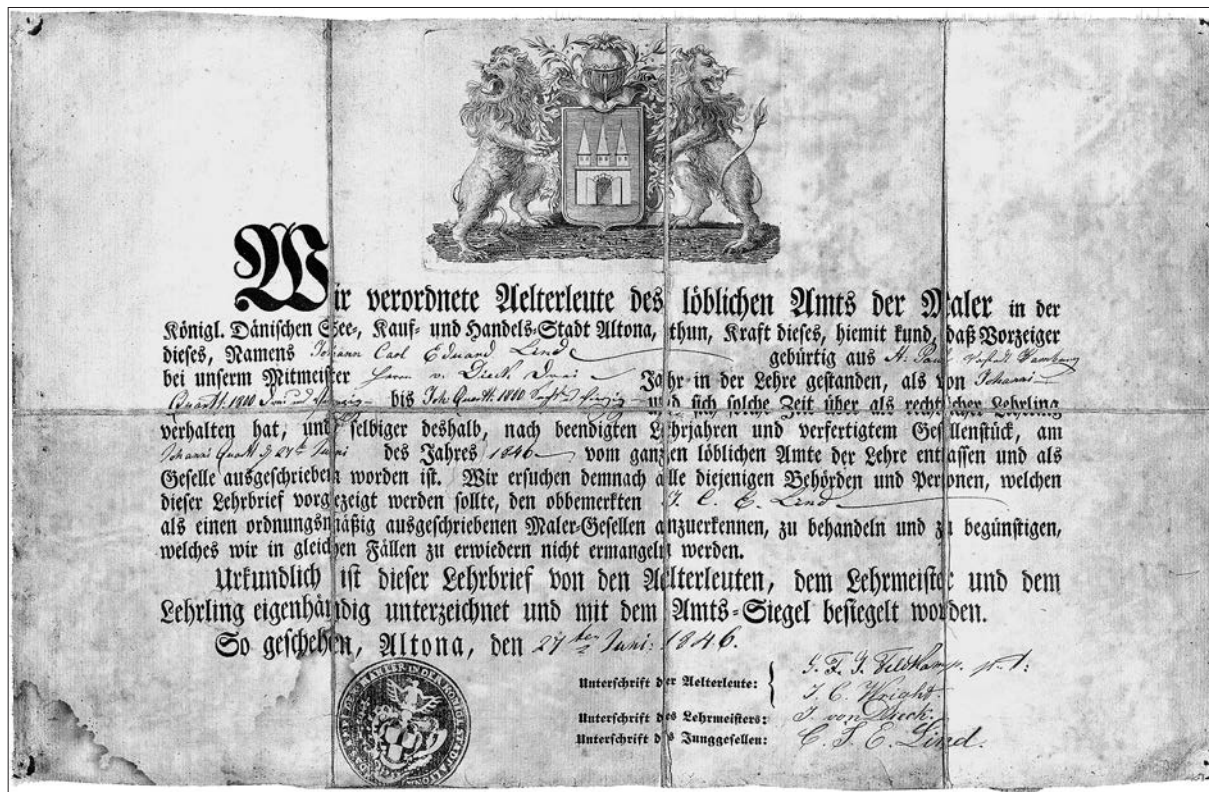 Wir verordnete Aelterleute des löblichen Amts der Maler in der
Königl. Dänischen See-, Kauf- und Handels-Stadt Altona, thun, Kraft dieses, hiemit kund, daß Vorzeiger
dieses, Namens Johann Carl Eduard Lind gebürtig aus St. Pauli Vorstadt Hamburg
bei unserm Mitmeister Herrn v. Dieck Drei Jahr in der Lehre gestanden, als von Johanni
Quartl. 1800 Drei und vierzig bis Joh. Quartl. 1800 Sechs & vierzig und sich solche Zeit über als rechtlicher Lehrling
verhalten hat, und selbiger deshalb, nach beendigten Lehrjahren und verfertigtem Gesellenstück, am
Johanni Quartl. 27ten Juni des Jahres 1846 vom ganzen löblichen Amte der Lehre entlassen und als
Geselle ausgeschrieben worden ist. Wir ersuchen demnach alle diejenigen Behörden und Personen, welchen
dieser Lehrbrief vorgezeigt werden sollte, den obbemerkten J. C. E. Lind
als einen ordnungsmäßig ausgeschriebenen Maler-Gesellen anzuerkennen, zu behandeln und zu begünstigen,
welches wir in gleichen Fällen zu erwiedern nicht ermangeln werden.
Urkundlich ist dieser Lehrbrief von den Aelterleuten, dem Lehrmeister und dem
Lehrling eigenhändig unterzeichnet und mit dem Amts-Siegel besiegelt worden.
So geschehen, Altona, den 27ten Juni: 1846.
Unterschrift der Aelterleute: J. F. J. Feldkamp. p. t:
J. C. Wright.
Unterschrift des Lehrmeisters: J. von Dieck.
Unterschrift des Junggesellen: C. J. E. Lind.